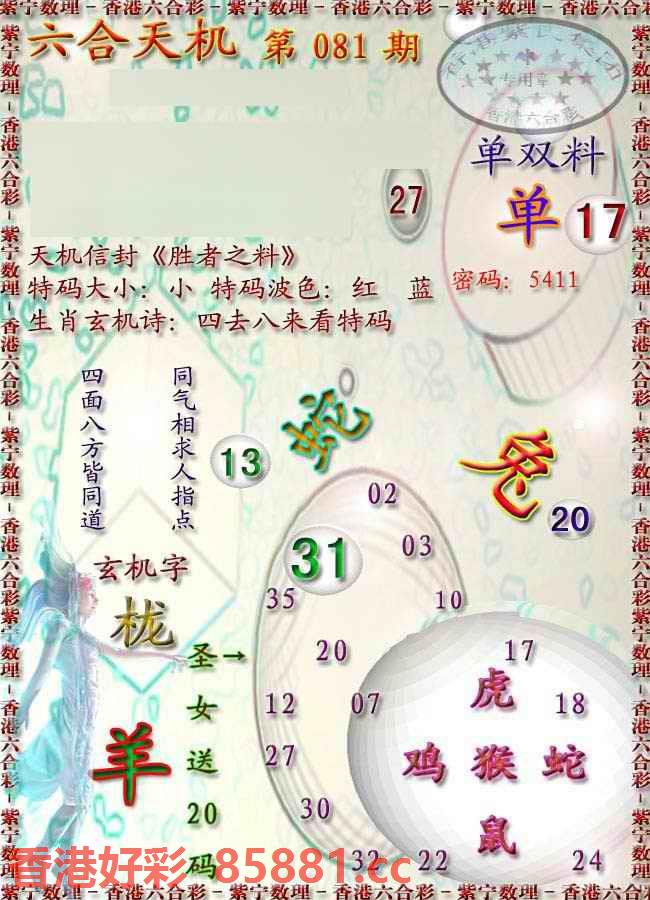 紫宁数理－香港六合彩－紫宁数理－香港六合彩－紫宁数理－香港六合彩
六合天机 第 081 期
专用章
香港六合彩
单双料
单 17
27
天机信封《胜者之料》
特码大小：小 特码波色：红 蓝
密码：5411
生肖玄机诗：四去八来看特码
四面八方皆同道
同气相求人指点
蛇
13
兔
20
31
玄机字
栊
羊
圣女送20码
→
02
03
35
10
20
17
12
07
18
27
30
32
22
24
虎
鸡 猴 蛇
鼠
香港好彩 85881.cc
紫宁数理－香港六合彩－紫宁数理－香港六合彩－紫宁数理－香港六合彩